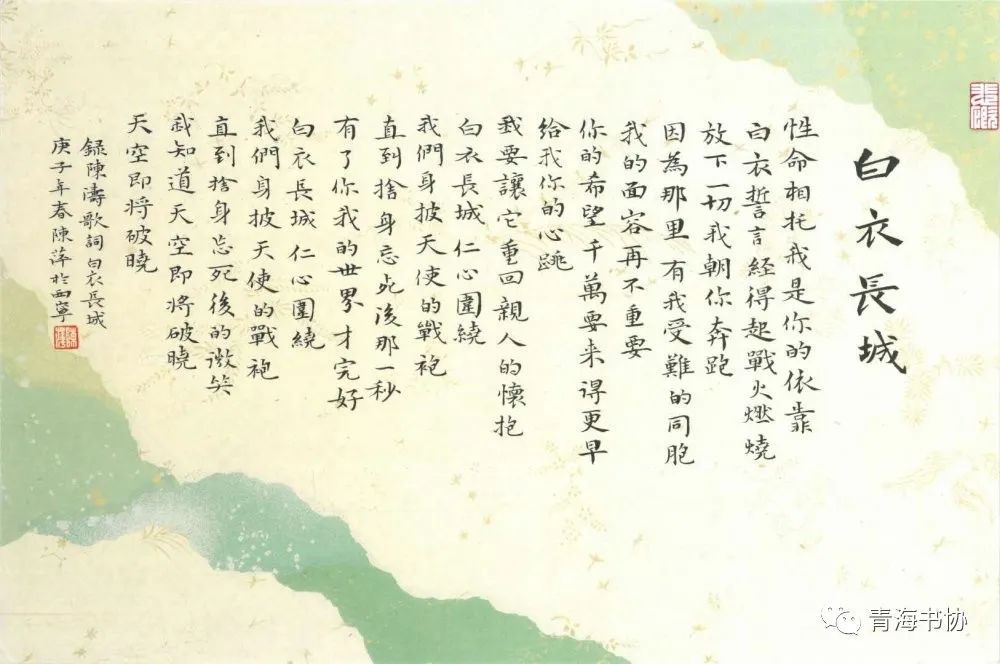 白衣長城
性命相托我是你的依靠
白衣誓言經得起戰火燃燒
放下一切我朝你奔跑
因為那里有我受難的同胞
我的面容再不重要
你的希望千萬要来得更早
給我你的心跳
我要讓它重回親人的懷抱
白衣長城 仁心圍繞
我們身披天使的戰袍
直到捨身忘死後那一秒
有了你我的世界才完好
白衣長城 仁心圍繞
我們身披天使的戰袍
直到捨身忘死後的微笑
我知道天空即將破曉
天空即將破曉
録陳濤歌詞白衣長城
庚子年春陳萍於西寧
青海书协